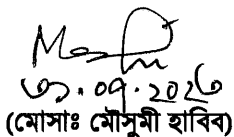 ৩১.০৭.২০২৩
(মোসাঃ মৌসুমী হাবিব)